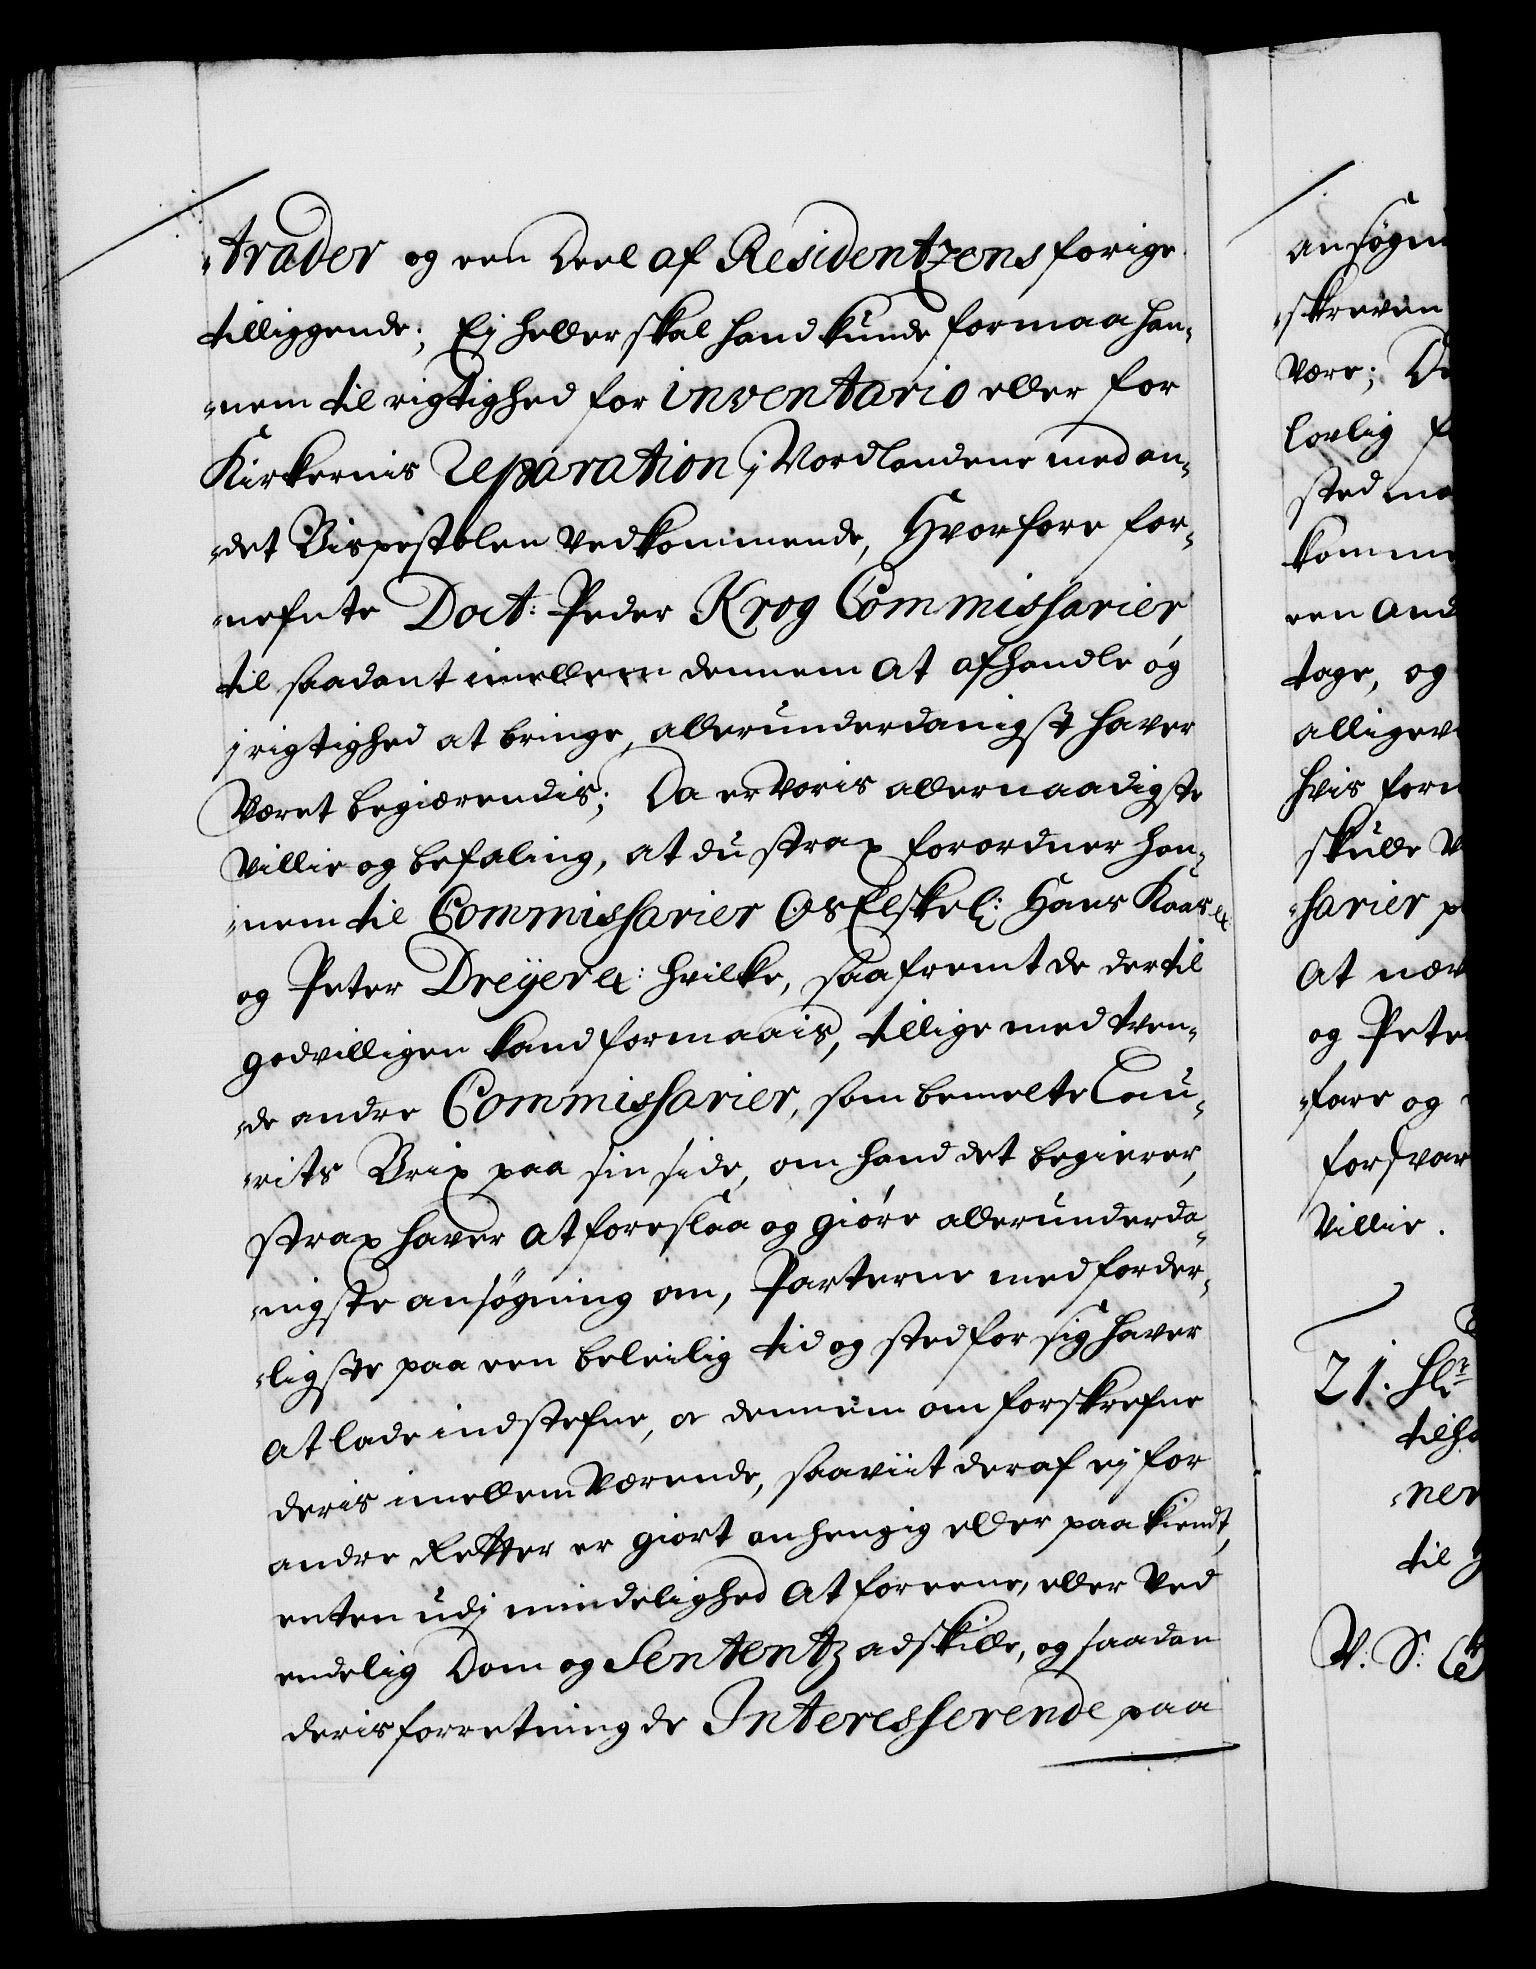 -trader og een Deel af Residentzens forige
tilliggende; Ej heller skal hand kunde formaa han-
-nem til rigtighed for inventario eller for
Kirkernis reparation j Nordlandene med an-
-det Bispestolen vedkommende, Hvorfore for-
-nefnte Doct: Peder Krog Commissarier
til saadant imellem dennem at afhandle og
j rigtighed at bringe, allerunderdanigst haver
været begiærendis; Da er Voris allernaadigste
Villie og befaling, at du strax forordner han-
-nem til Commissarier Os Elskel: Hans Kaas
og Peter Dreyer hvilke, saafremt de dertil
godvilligen kand formaais, tillige med tven-
-de andre Commissarier, som bemelte Lau-
-rits Brix paa sin side, om hand det begierer,
strax haver at foreslaa og giøre allerunderda-
-nigste ansøgning om, Parterne med forder-
-ligste paa een beleilig tid og sted for sig haver
at lade indstefne, dennem om forskrefne
deris imellem Værende, saaviit deraf ej for
andre Retter er giort anhengig eller paakiendt,
enten udj mindelighed at foreene, eller ved
endelig Dom og Sententz adskille, og saadan
deris forretning de Interesserende paa
ansøgn
-skreven
være; De
lovlig
sted
komme
een and
tage, og
alligev
hvis
skulle
-sarier
at
og Peter
-fare og
forsvar
Villie.
21.
til
-ner
til
V. S: